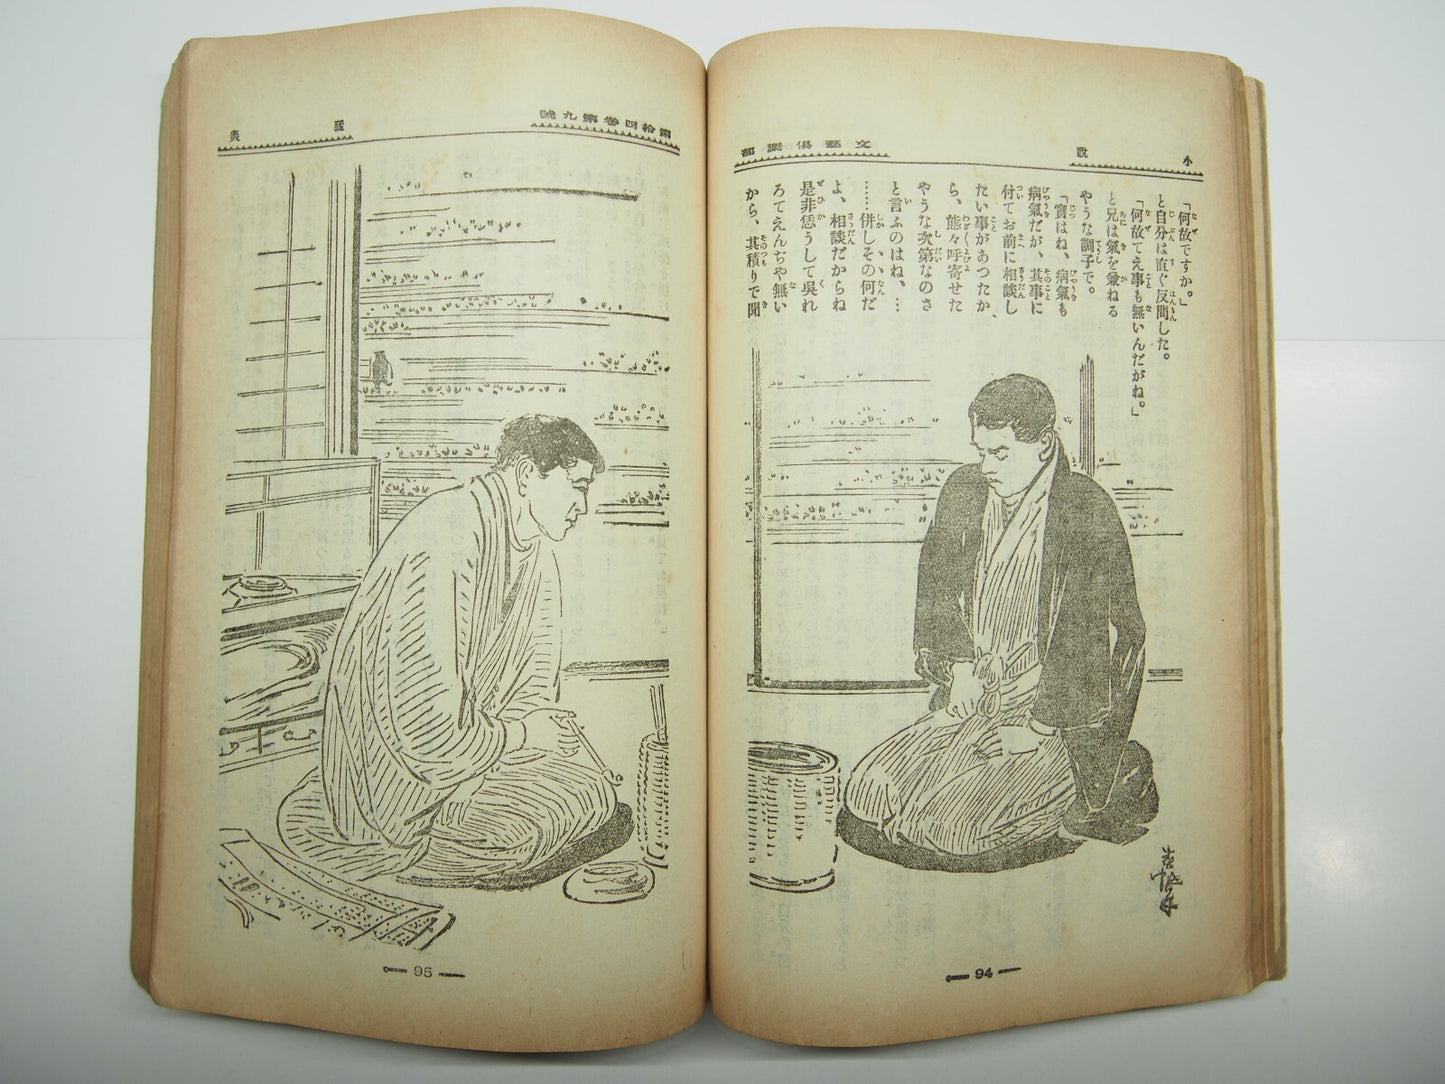 小說
文藝俱樂部
「何故ですか。」
と自分は直ぐ反問した。
「何故てえ事も無いんだがね。」
と兄は氣を兼ねる
やうな調子で。
「實はね、病氣も
病氣だが、其事に
付てお前に相談し
たい事があつたか
ら、態々呼寄せた
やうな次第なのさ
と言ふのはね、…
……併しその何だ
よ、相談だからね
是非恁うして吳れ
ろてえんぢや無い
から、其積りで聞
94
第拾四卷第九號
95